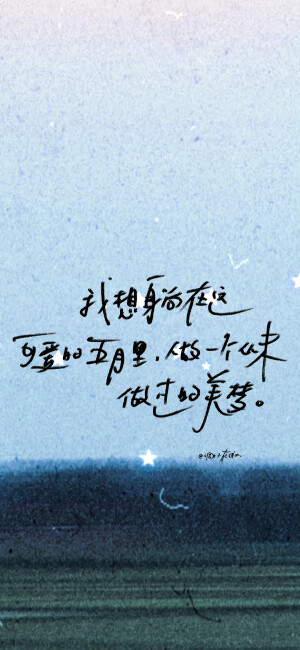 我想身尚在这
可爱的五月里，做一个从未
做过的美梦。